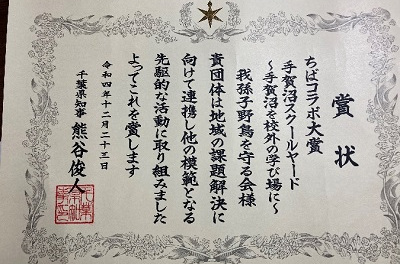 賞状
ちばコラボ大賞
手賀沼スクールヤード
～手賀沼を校外の学び場に～
我孫子野鳥を守る会様
貴団体は地域の課題解決に
向けて連携し他の模範となる
先駆的な活動に取り組みました
よってこれを賞します
令和四年十二月二十三日
千葉県知事 熊谷俊人